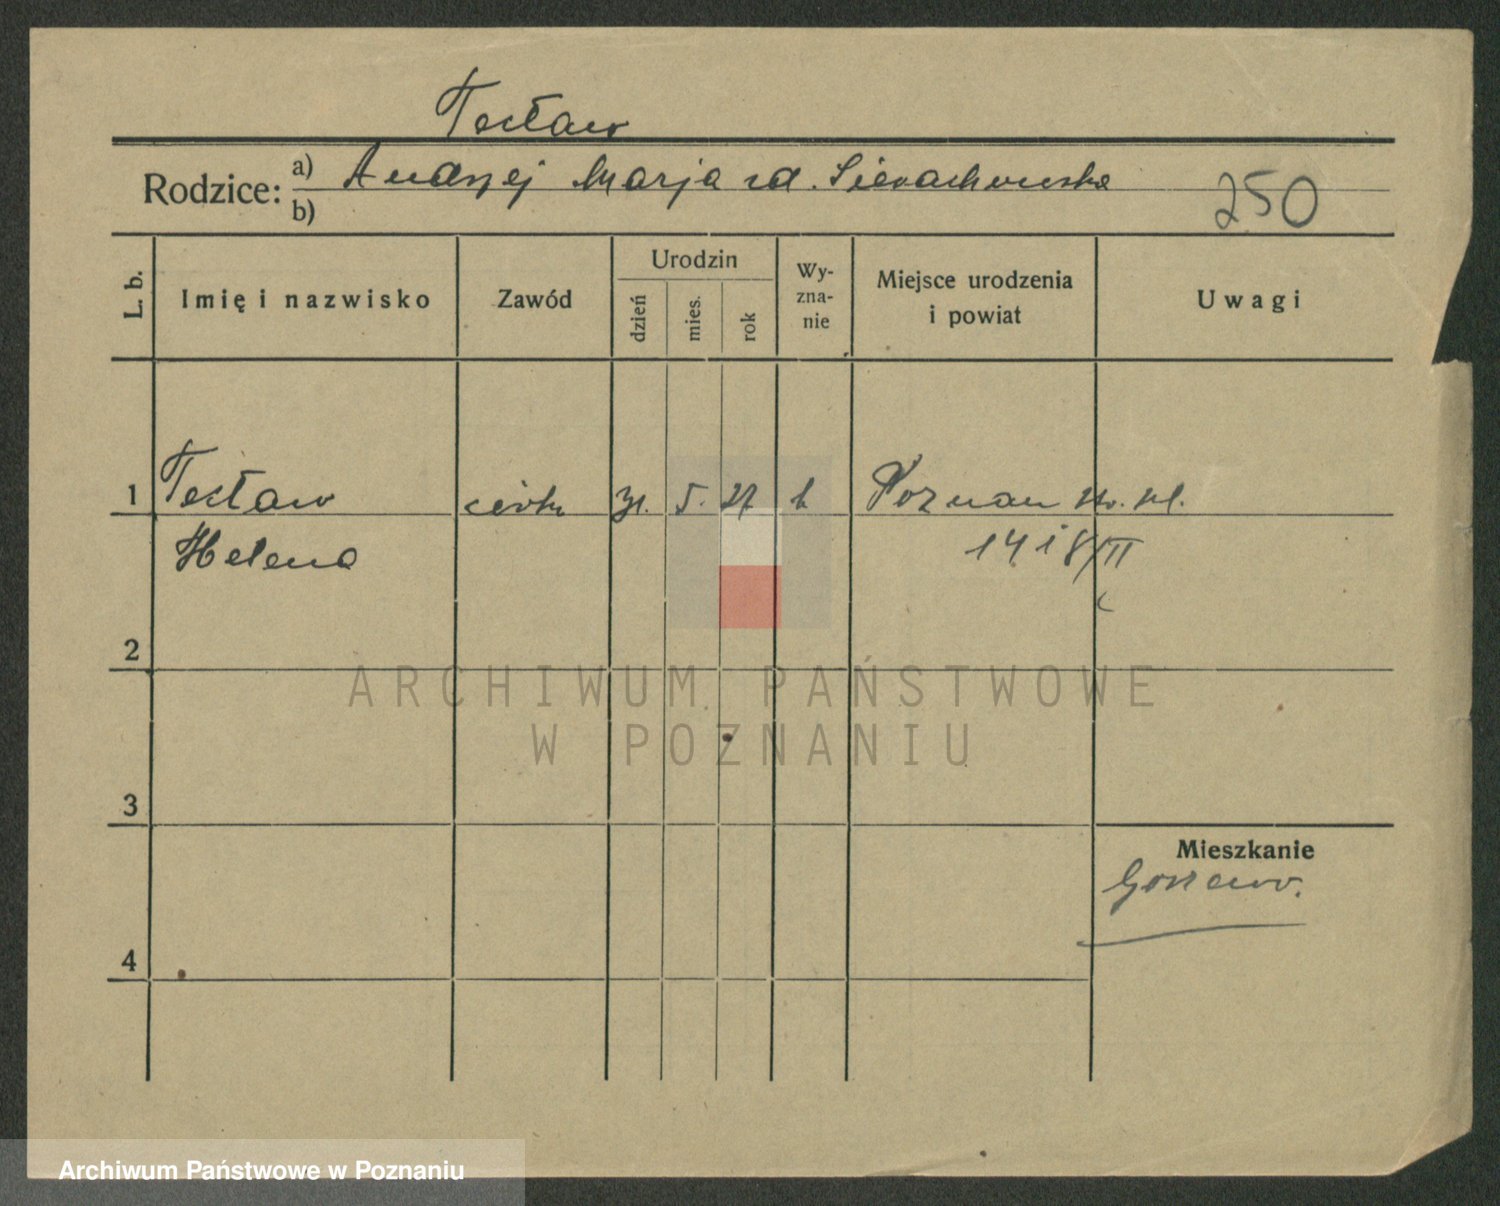 Tecław
Rodzice: a) Andrzej Marja zd. Sierachowska
b)
250
L. b.
Imię i nazwisko
Zawód
Urodzin
dzień
mies.
rok
Wy-
zna-
nie
Miejsce urodzenia
i powiat
Uwagi
1 Tecław 5. 27 Poznan
Helena 14 18/II
2
3
4
Mieszkanie
ARCHIWUM PAŃSTWOWE
W POZNANIU
Archiwum Państwowe w Poznaniu